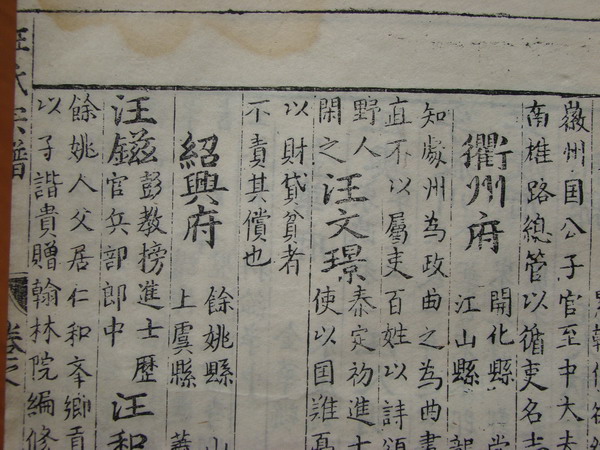 徽州国公子官至中大夫
南雄路總管以循吏名士
衢州府
開化縣
江山縣
知處州為政曲之為曲書
直不以屬吏百姓以詩頌
野人
閑之
汪文璟
泰定初進士
使以国難憂
以財貸貧者
不責其償也
紹興府
餘姚縣 山
上虞縣
汪鎡
彭教榜進士歷
官兵部郎中
汪和
餘姚人父居仁和 鄉貢
以子諧貴贈翰林院編修
汪氏宗譜
卷之